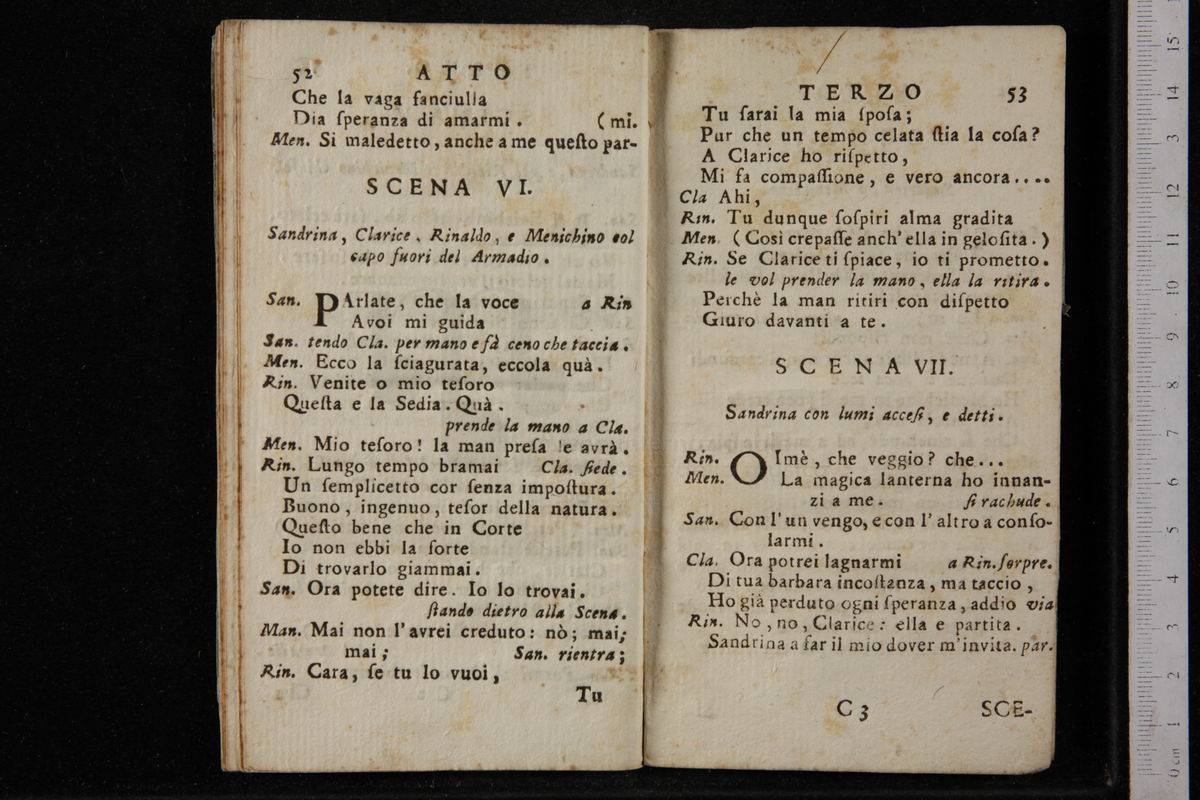 52 ATTO
Che la vaga fanciulla
Dia ſperanza di amarmi . (mi.
Men. Si maledetto, anche a me queſto par-
SCENA VI.
Sandrina, Clarice, Rinaldo, e Menichino col
capo fuori del Armadio.
San. PArlate, che la voce a Rin
Avoi mi guida
San. tendo Cla. per mano e fà ceno che taccia.
Men. Ecco la ſciagurata, eccola quà.
Rin. Venite o mio teſoro
Queſta e la Sedia. Quà.
prende la mano a Cla.
Men. Mio teſoro! la man preſa le avrà.
Rin. Lungo tempo bramai Cla. ſiede.
Un ſemplicetto cor ſenza impoſtura.
Buono, ingenuo, teſor della natura.
Queſto bene che in Corte
Io non ebbi la ſorte
Di trovarlo giammai.
San. Ora potete dire. Io lo trovai.
ſtando dietro alla Scena.
Man. Mai non l'avrei creduto: nò; mai;
mai; San. rientra;
Rin. Cara, ſe tu lo vuoi,
Tu
TERZO 53
Tu ſarai la mia ſpoſa;
Pur che un tempo celata ſtia la coſa?
A Clarice ho riſpetto,
Mi fa compaſſione, e vero ancora....
Cla Ahi,
Rin. Tu dunque ſoſpiri alma gradita
Men. (Così crepaſſe anch' ella in geloſita.)
Rin. Se Clarice ti ſpiace, io ti prometto.
le vol prender la mano, ella la ritira.
Perchè la man ritiri con diſpetto
Giuro davanti a te.
SCENA VII.
Sandrina con lumi acceſi, e detti.
Rin. OImè, che veggio? che...
Men. La magica lanterna ho innan-
zi a me. ſi rachude.
San. Con l'un vengo, e con l'altro a conſo-
larmi.
Cla. Ora potrei lagnarmi a Rin. ſorpre.
Di tua barbara incoſtanza, ma taccio,
Ho già perduto ogni ſperanza, addio via
Rin. No, no, Clarice: ella e partita.
Sandrina a far il mio dover m'invita. par.
C 3 SCE-
0 cm 1 2 3 4 5 6 7 8 9 10 11 12 13 14 15